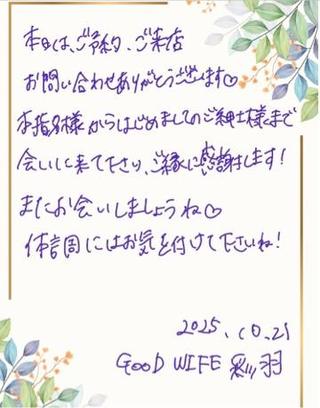 本日は、ご予約、ご来店
お問い合わせありがとうございます♡
本指名様からはじめましてのご紳士様まで
会いに来て下さり、ご縁に感謝します！
またお会いしましょうね♡
体調にはお気を付けて下さいね！
2025.10.21
GOOD WIFE 彩羽